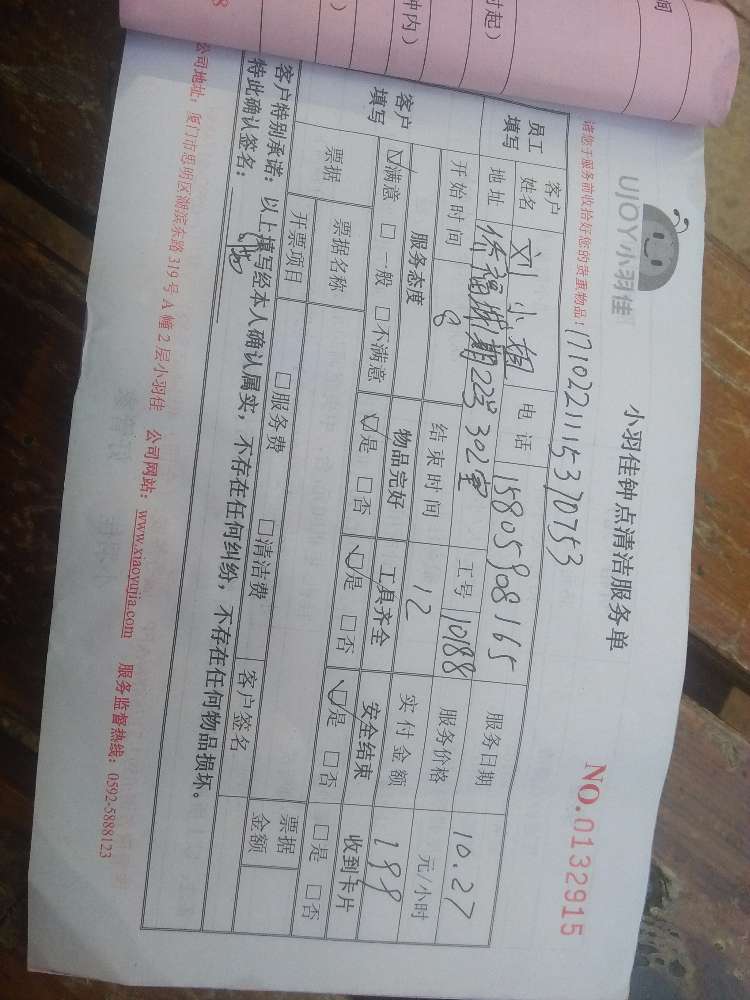 间
时起)
钟内)
)
)
8
UJOY小羽佳
小羽佳钟点清洁服务单
NO.0132915
请您于服务前收拾好您的贵重物品!
17102211115370753
员工填写
客户姓名
刘小姐
电话
15805908165
服务日期
10.27
地址
22号302室
工号
10188
服务价格
元/小时
开始时间
8
结束时间
12
实付金额
199
客户填写
服务态度
物品完好
工具齐全
安全结束
收到卡片
☑满意 □一般 □不满意
☑是 □否
☑是 □否
☑是 □否
□是 □否
票据
票据名称
□服务费
□清洁费
票据金额
开票项目
客户签名
客户特别承诺:以上填写经本人确认属实,不存在任何纠纷,不存在任何物品损坏。
特此确认签名:
公司地址:厦门市思明区湖滨东路319号A幢2层小羽佳 公司网站:www.xiaoyujia.com 服务监督热线:0592-5888123